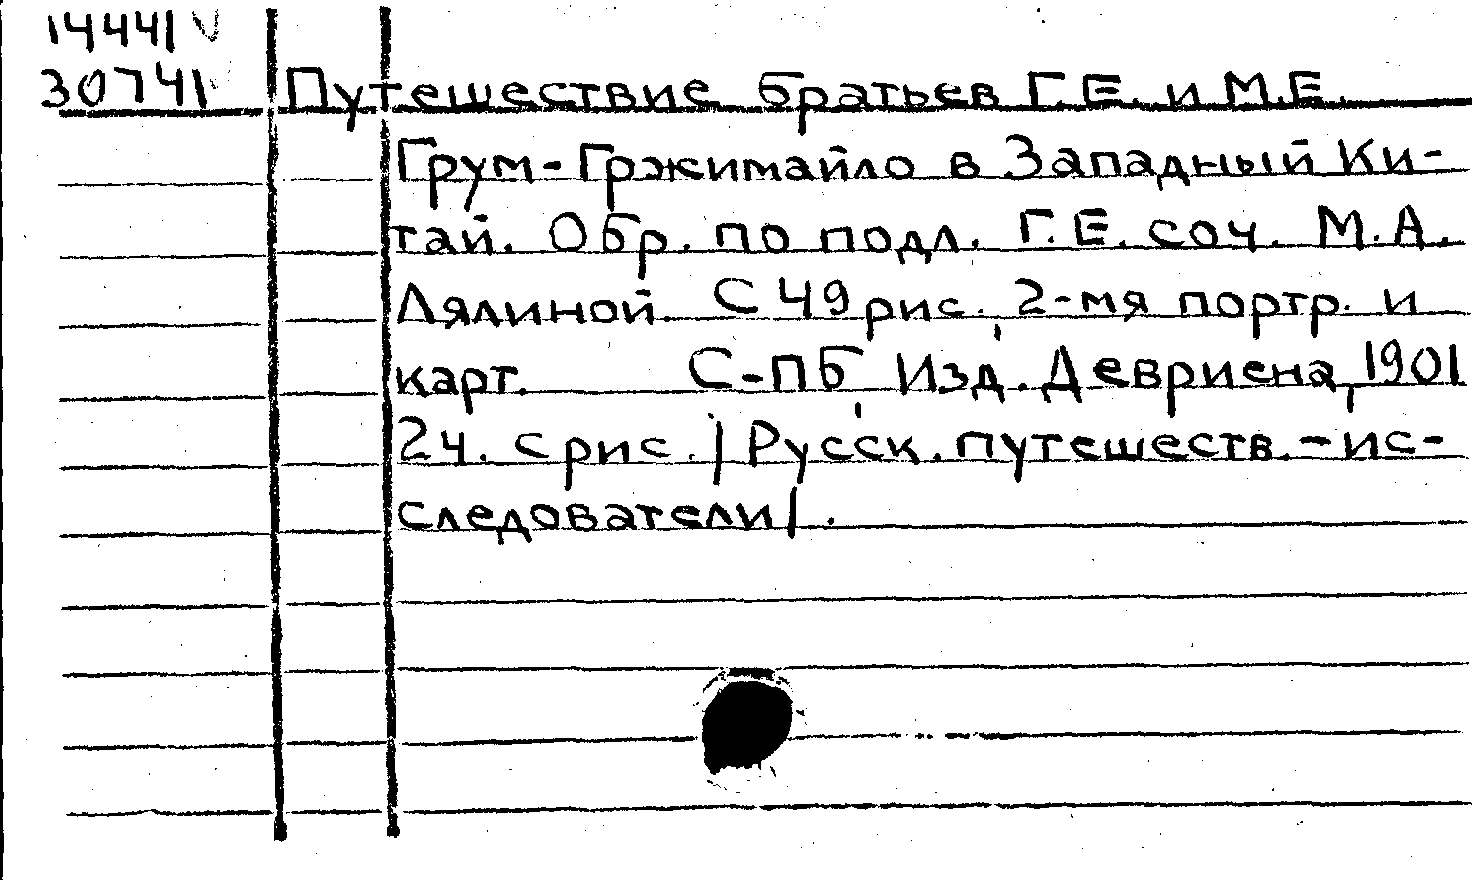 14441 V
30741 Путешествие братьев Г.Е. и М.Е.
Грум-Гржимайло в Западный Ки-
тай. Обр. по подл. Г.Е. соч. М.А.
Лялиной. С 49 рис., 2-мя портр. и
карт. С-ПБ, Изд. Девриена, 1901
24. с рис. /Русск. путешеств.-ис-
следователи/.